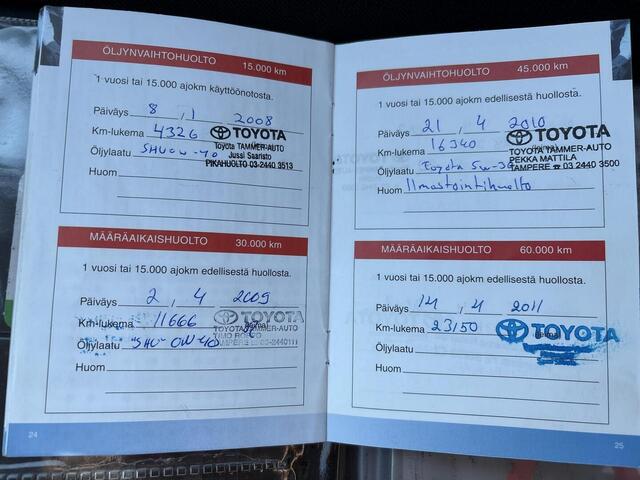 ÖLJYNVAIHTOHUOLTO 15.000 km
1 vuosi tai 15.000 ajokm käyttöönotosta.
Päiväys 8 . 1 2008
Km-lukema 4326 TOYOTA
Toyota TAMMER-AUTO
Öljylaatu 0W-40 Jussi Saaristo
PIKAHUOLTO 03-2440 3513
Huom
MÄÄRÄAIKAISHUOLTO 30.000 km
1 vuosi tai 15.000 ajokm edellisestä huollosta.
Päiväys 2 , 4 2009
Km-lukema 11666 TOYOTA
(leima)
TOYOTA TAMMER-AUTO
Öljylaatu "SHU" 0W-40
TAMPERE ☎ 03-2440111
Huom
24
ÖLJYNVAIHTOHUOLTO 45.000 km
1 vuosi tai 15.000 ajokm edellisestä huollosta.
Päiväys 21 , 4 2010
Km-lukema 16340 TOYOTA
TOYOTA TAMMER-AUTO
PEKKA MATTILA
Öljylaatu Toyota 5w-30 TAMPERE ☎ 03 2440 3500
Huom Ilmastointihuolto
MÄÄRÄAIKAISHUOLTO 60.000 km
1 vuosi tai 15.000 ajokm edellisestä huollosta.
Päiväys 14 , 4 2011
Km-lukema 23150 TOYOTA
(leima)
Öljylaatu
Huom
25